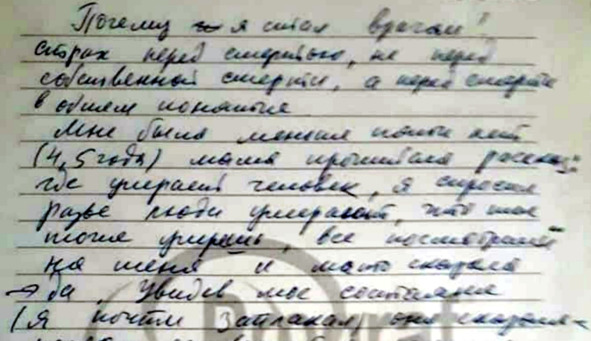 Почему я стал врачом?
страх перед смертью, не перед
собственной смерти, а перед смерти
в общем понятия
Мне было меньше пяти лет
(4,5 года) мама прочитала рассказ:
где умирает человек, я спросил
разве люди умирают, что
тоже умрешь, все посмотрели
на меня и мать сказала
→ да, увидев мое состояние
(я почти заплакал) она сказала